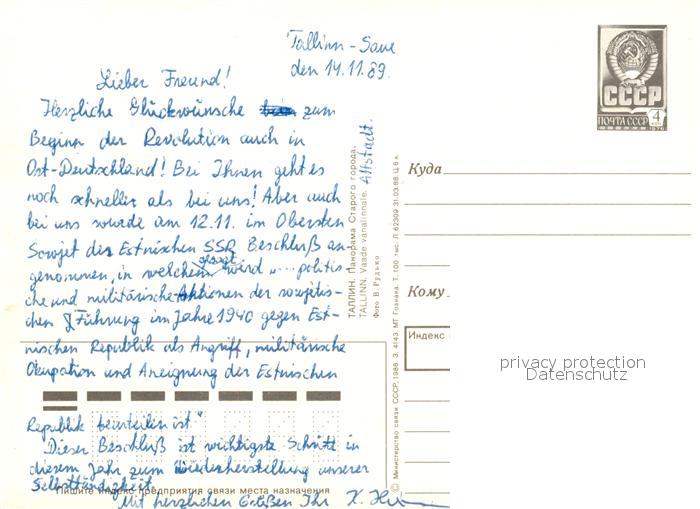 Tallinn - Saue
den 14.11.89.
Lieber Freund!
Herzliche Glückwünsche zum
Beginn der Revolution auch in
Ost-Deutschland! Bei Ihnen geht es
noch schneller als bei uns! Aber auch
bei uns wurde am 12.11. im Obersten
Sowjet der Estnischen SSR Beschluß an-
genommen, in welchem gesagt wird "... politis-
che und militärische Aktionen der sowjetis-
chen Führung im Jahre 1940 gegen Est-
nischen Republik als Angriff, militärische
Okupation und Aneignung der Estnischen
Republik beurteilen ist"
Dieser Beschluß ist wichtigste Schritt in
diesem Jahr zum Wiederherstellung unserer
Selbständigkeit.
Mit herzlichen Grüßen Ihr
Пишите индекс предприятия связи места назначения
Altstadt.
ТАЛЛИН. Панорама Старого города.
TALLINN. Vaade vanalinnale.
Фото В. Рудько
© Министерство связи СССР. 1988. З. 4143. МТ Гознака. Т. 100 тыс. Л 62309 31.03.88. Ц 6 к.
СССР
ПОЧТА СССР 4
1976
Куда
Кому
Индекс
privacy protection
Datenschutz